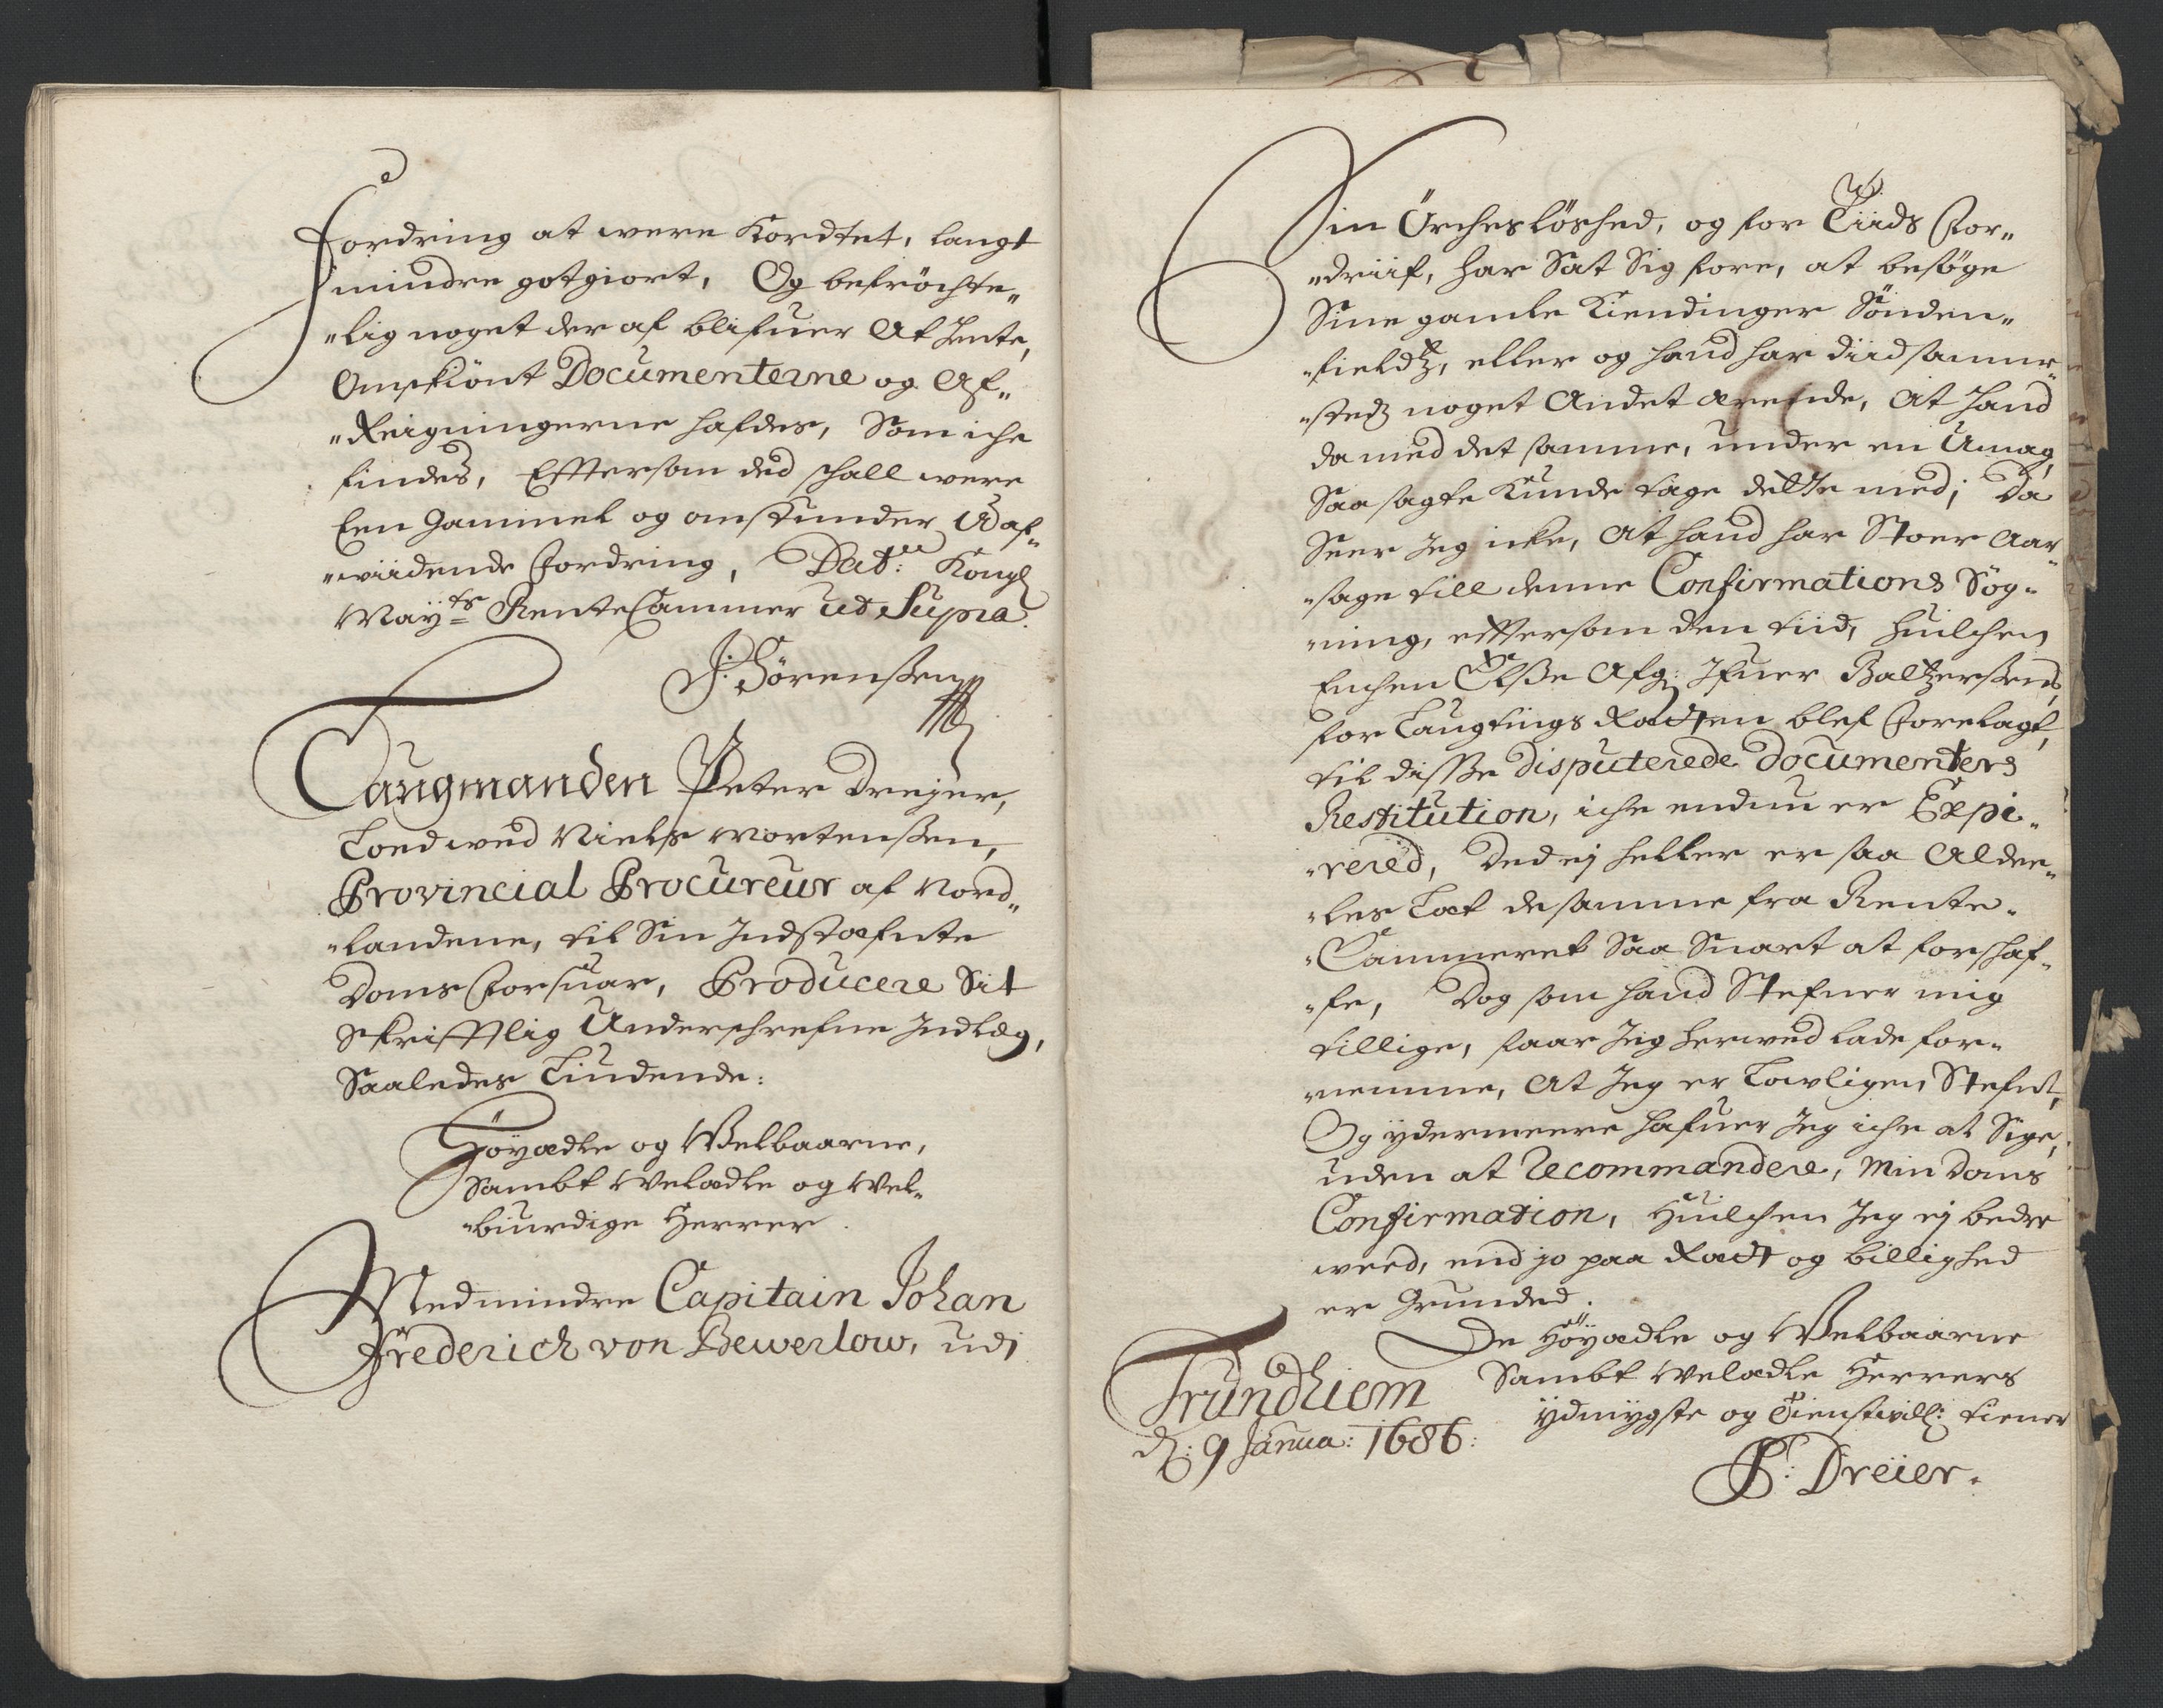 fordring at were Kordtet, langt
mindre gotgiort, Og befröchte„
„lig noget der af blifuer At hente,
Omskiönt Documenterne og Af„
„Reigningerne hafdes, Som iche
findes, Effterson ded schall were
Een Gammel og omstunder Uaf„
„wiidende Fordring, Dat: Kongl
Mayts RenteCammer ut Supra.
J: Sörensen
Laugmanden Peter Dreyer,
Loed wed Niels Mortensen,
Provincial Procureur af Nord„
„landene, til Sin Indstæfnte
Doms Forsuar, Producere Sit
Skrifftlig Underschrefne Indlæg,
Saaledes Liudende:
Höyædle og Welbaarne,
Sambt Welædle og Wel„
„biurdige Herrer.
Medmindre Capitain Johan
Frederich von Bewerlow, udi
Sin Örcheslöshed, og for Tiids For„
„driif, har Sat Sig fore, at besöge
Sine gamle Kiendinger Sönden„
„fieldtz, eller og hand har diidsamme„
„stedz noget Andet ærende, At hand
da med det samme, under en Umag,
Saa sagte Kunde tage dette med; Da
Seer Jeg icke, At hand har Stoer Aar„
„sage till denne Confirmations Sög„
„ning, effterson den tiid, huilchen
Enchen Else Afg: Ifuer Baltzersens,
for Laugtings Rætten blef Forelagt,
til disse disputerede Documenters
Restitution, iche endnu er Expi„
„rered, Ded ej heller er saa Aldee„
„les Læt desamme fra Rente„
„Cammeret Saa Snart at forschaf„
„fe, Dog som hand Stefner mig
tillige, faar Jeg herwed lade for„
„nemme, At Jeg er Lowligen Stefnt,
Og ydermeere hafuer Jeg iche at Sige,
uden at Recommandere, Min Doms
Confirmation, Huilchen Jeg ej bedre
weed, end jo paa Rætt og billighed
er Grunded.
De Höyædle og Welbaarne
Sambt Welædle Herrers
ydmygste og Tienstwill: tiener
Trundhiem
d: 9 Janua: 1686:
P: Dreier.